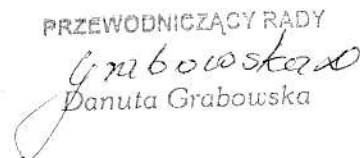 PRZEWODNICZĄCY RADY
Grabowska
Danuta Grabowska